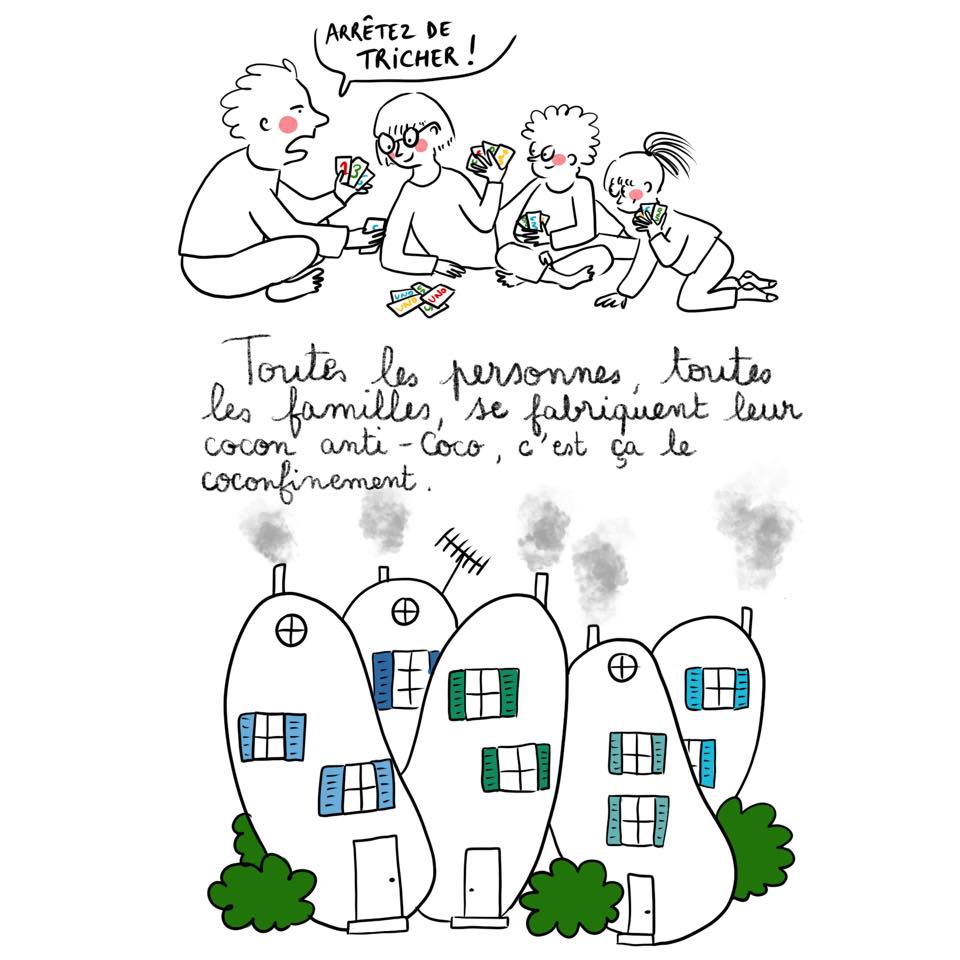 ARRÊTEZ DE
TRiCHER !
1 3
UNO
UNO
UNO
Toutes les personnes, toutes
les familles, se fabriquent leur
cocon anti-Coco, c'est ça le
coconfinement.